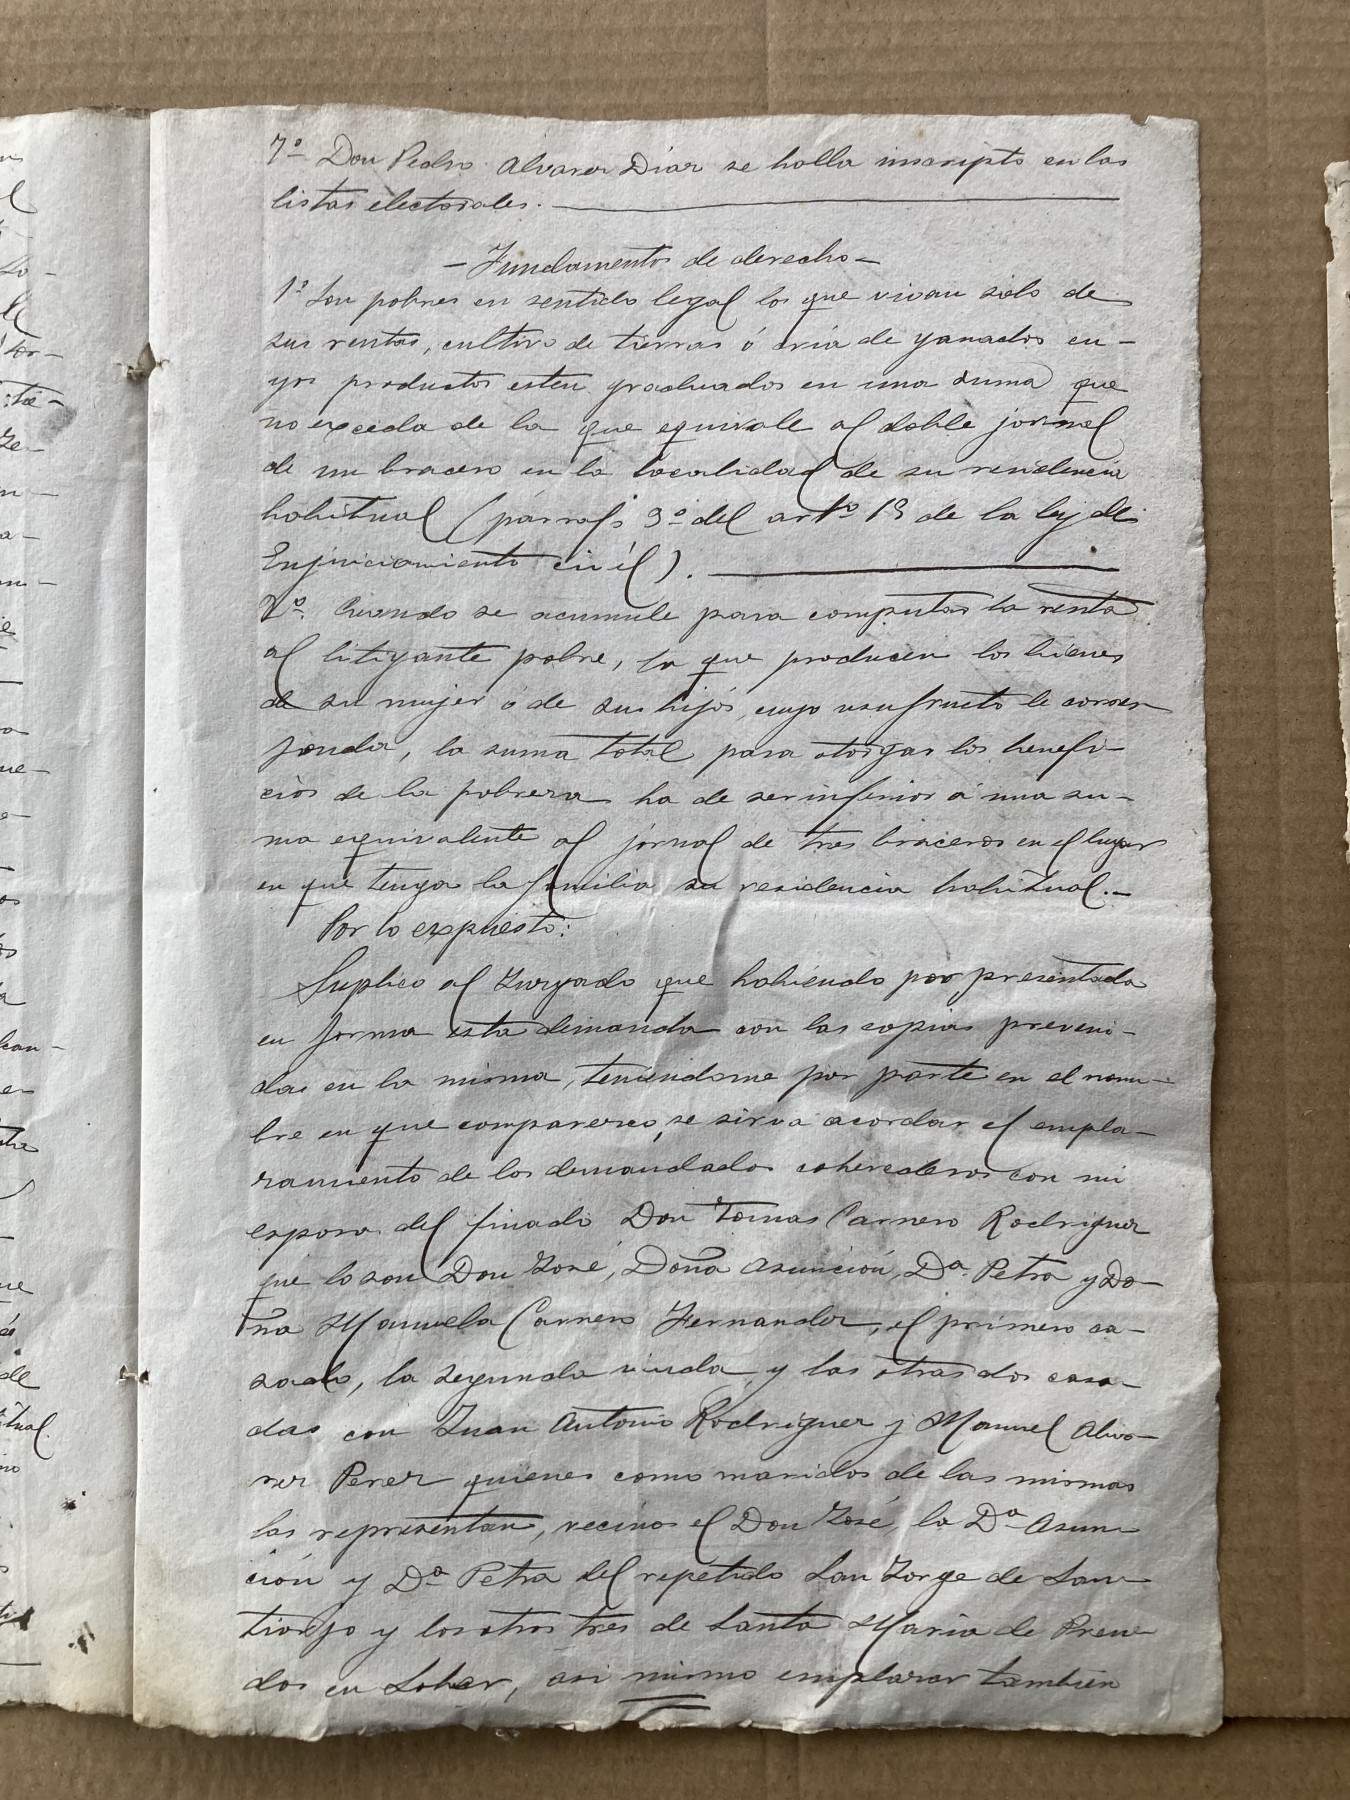 7º Don Pedro Alvarez Diaz se halla inscripto en las
listas electorales.
- Fundamentos de derecho -
1º Son pobres en sentido legal los que vivan solo de
sus rentas, cultivo de tierras ó cria de ganados cu-
yos productos esten graduados en una suma que
no exceda de la que equivale al doble jornal
de un bracero en la localidad de su residencia
habitual (párrafo 3º del artº 15 de la ley de
Enjuiciamiento civil).
2º. Cuando se acumule para computar la renta
al litigante pobre, la que producen los bienes
de su mujer ó de sus hijos, cuyo usufructo le corres
ponda, la suma total para otorgar los benefi-
cios de la pobreza ha de ser inferior á una su-
ma equivalente al jornal de tres braceros en el lugar
en que tenga la familia su residencia habitual.-
Por lo expuesto:
Suplico al Juzgado que habiendo por presentada
en forma esta demanda con las copias preveni-
das en la misma, teniendome por parte en el nom-
bre en que comparezco, se sirva acordar el empla-
zamiento de los demandados coherederos con mi
esposa del finado Don Tomas Carnero Rodriguez
que lo son Don José, Doña Asunción, Dª Petra y Do-
ña Manuela Carnero Fernandez, el primero ca-
sado, la segunda viuda y las otras dos casa-
das con Juan Antonio Rodriguez y Manuel Alva-
rez Perez quienes como maridos de las mismas
las representan, vecinos el Don José, la Dª Asun
ción y Dª Petra del repetido San Jorge de San-
tiorjo y los otros tres de Santa Maria de Proen-
dos en Sober, asi mismo emplazar tambien